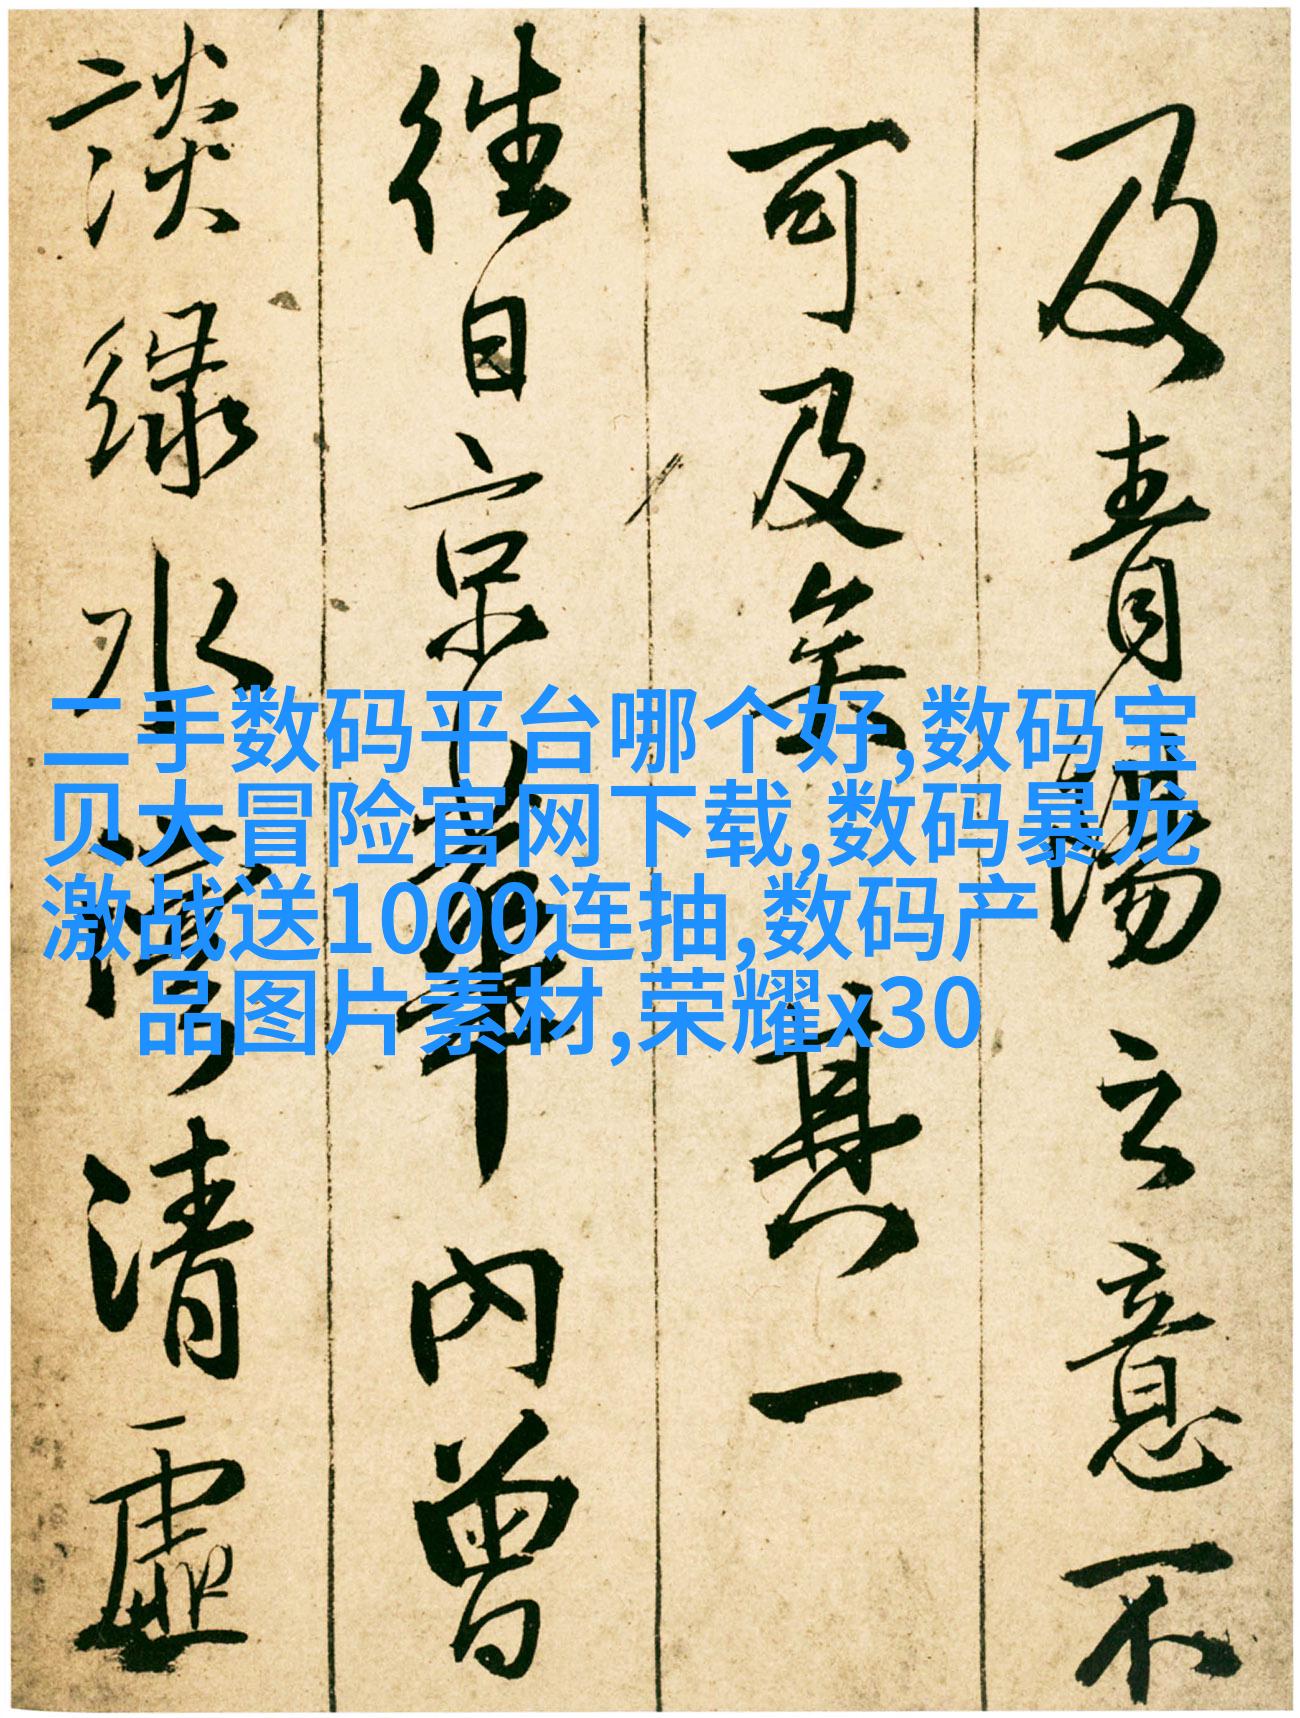 及青 云意不
可及矣 其一
往日京華内曾
談綠水 清虛
二手数码平台哪个好,数码宝
贝大冒险官网下载,数码暴龙
激战送1000连抽,数码产
品图片素材,荣耀x30